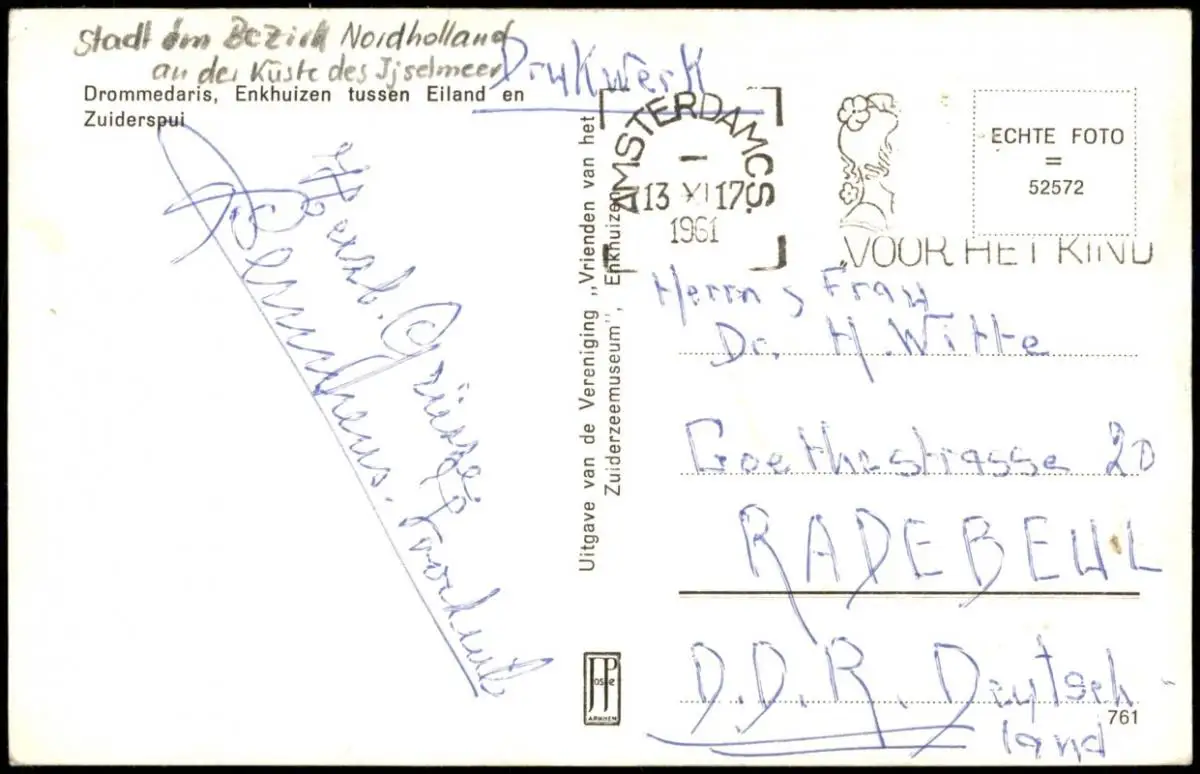 Stadt im Bezirk Nordholland
an der Küste des Ijselmeer
Drukwerk
Drommedaris, Enkhuizen tussen Eiland en
Zuiderspui
Herzl. Grüsse
Voorhout
Uitgave van de Vereniging „Vrienden van het
Zuiderzeemuseum", Enkhuizen
AMSTERDAM C.S.
13 XI 17
1961
VOOR HET KIND
ECHTE FOTO
=
52572
Herrn, Frau
Dr. H. Witte
Goethestrasse 20
RADEBEUL
D.D.R. Deutsch-
land
761
JP
oste
ARNHEM